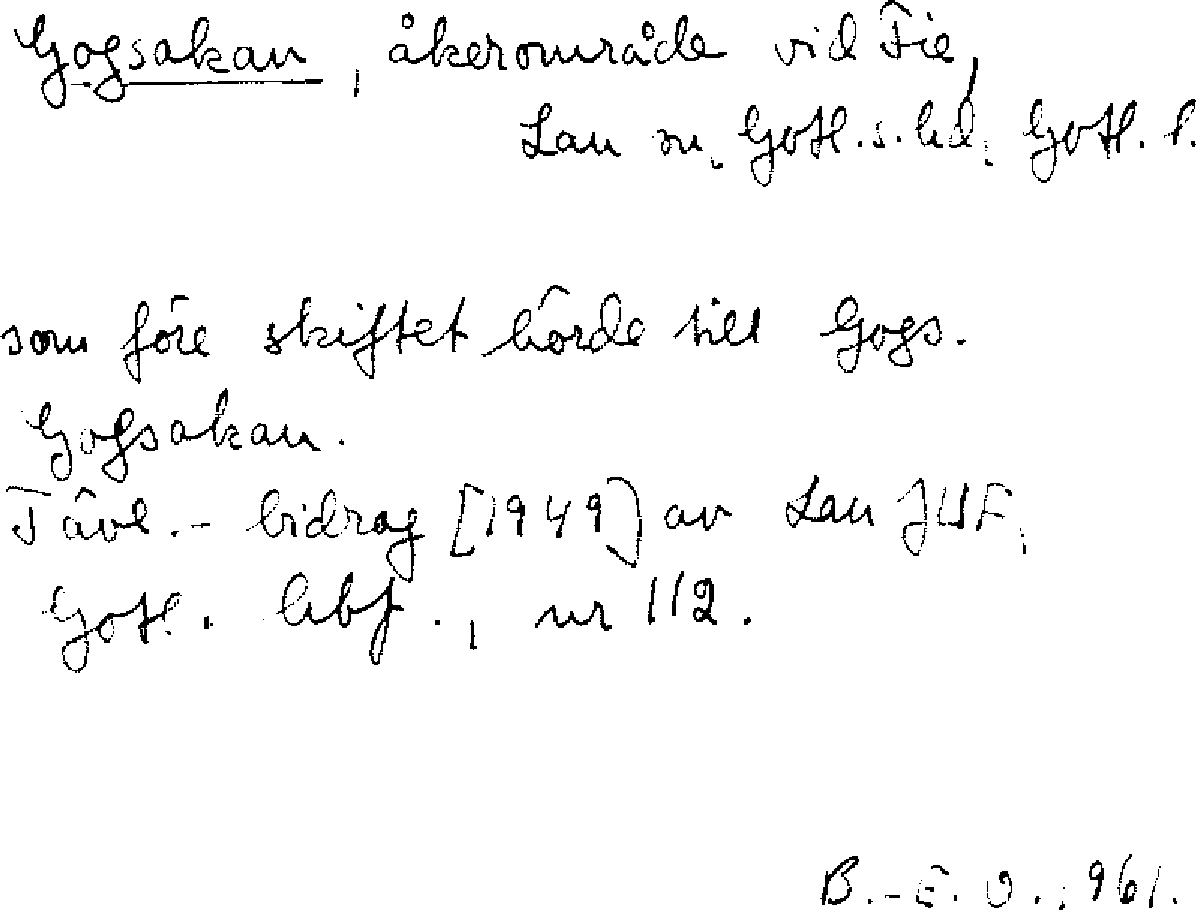 Gogsakan, åkerområde vid Fie,
Lau sn, Gotl. s. hd, Gotl. l.
som före skiftet hörde till Gogs.
Gogsakan.
Tävl.-bidrag [1949] av Lau JUF,
Gotl. hbf., nr 112.
B.-E. O., 961.